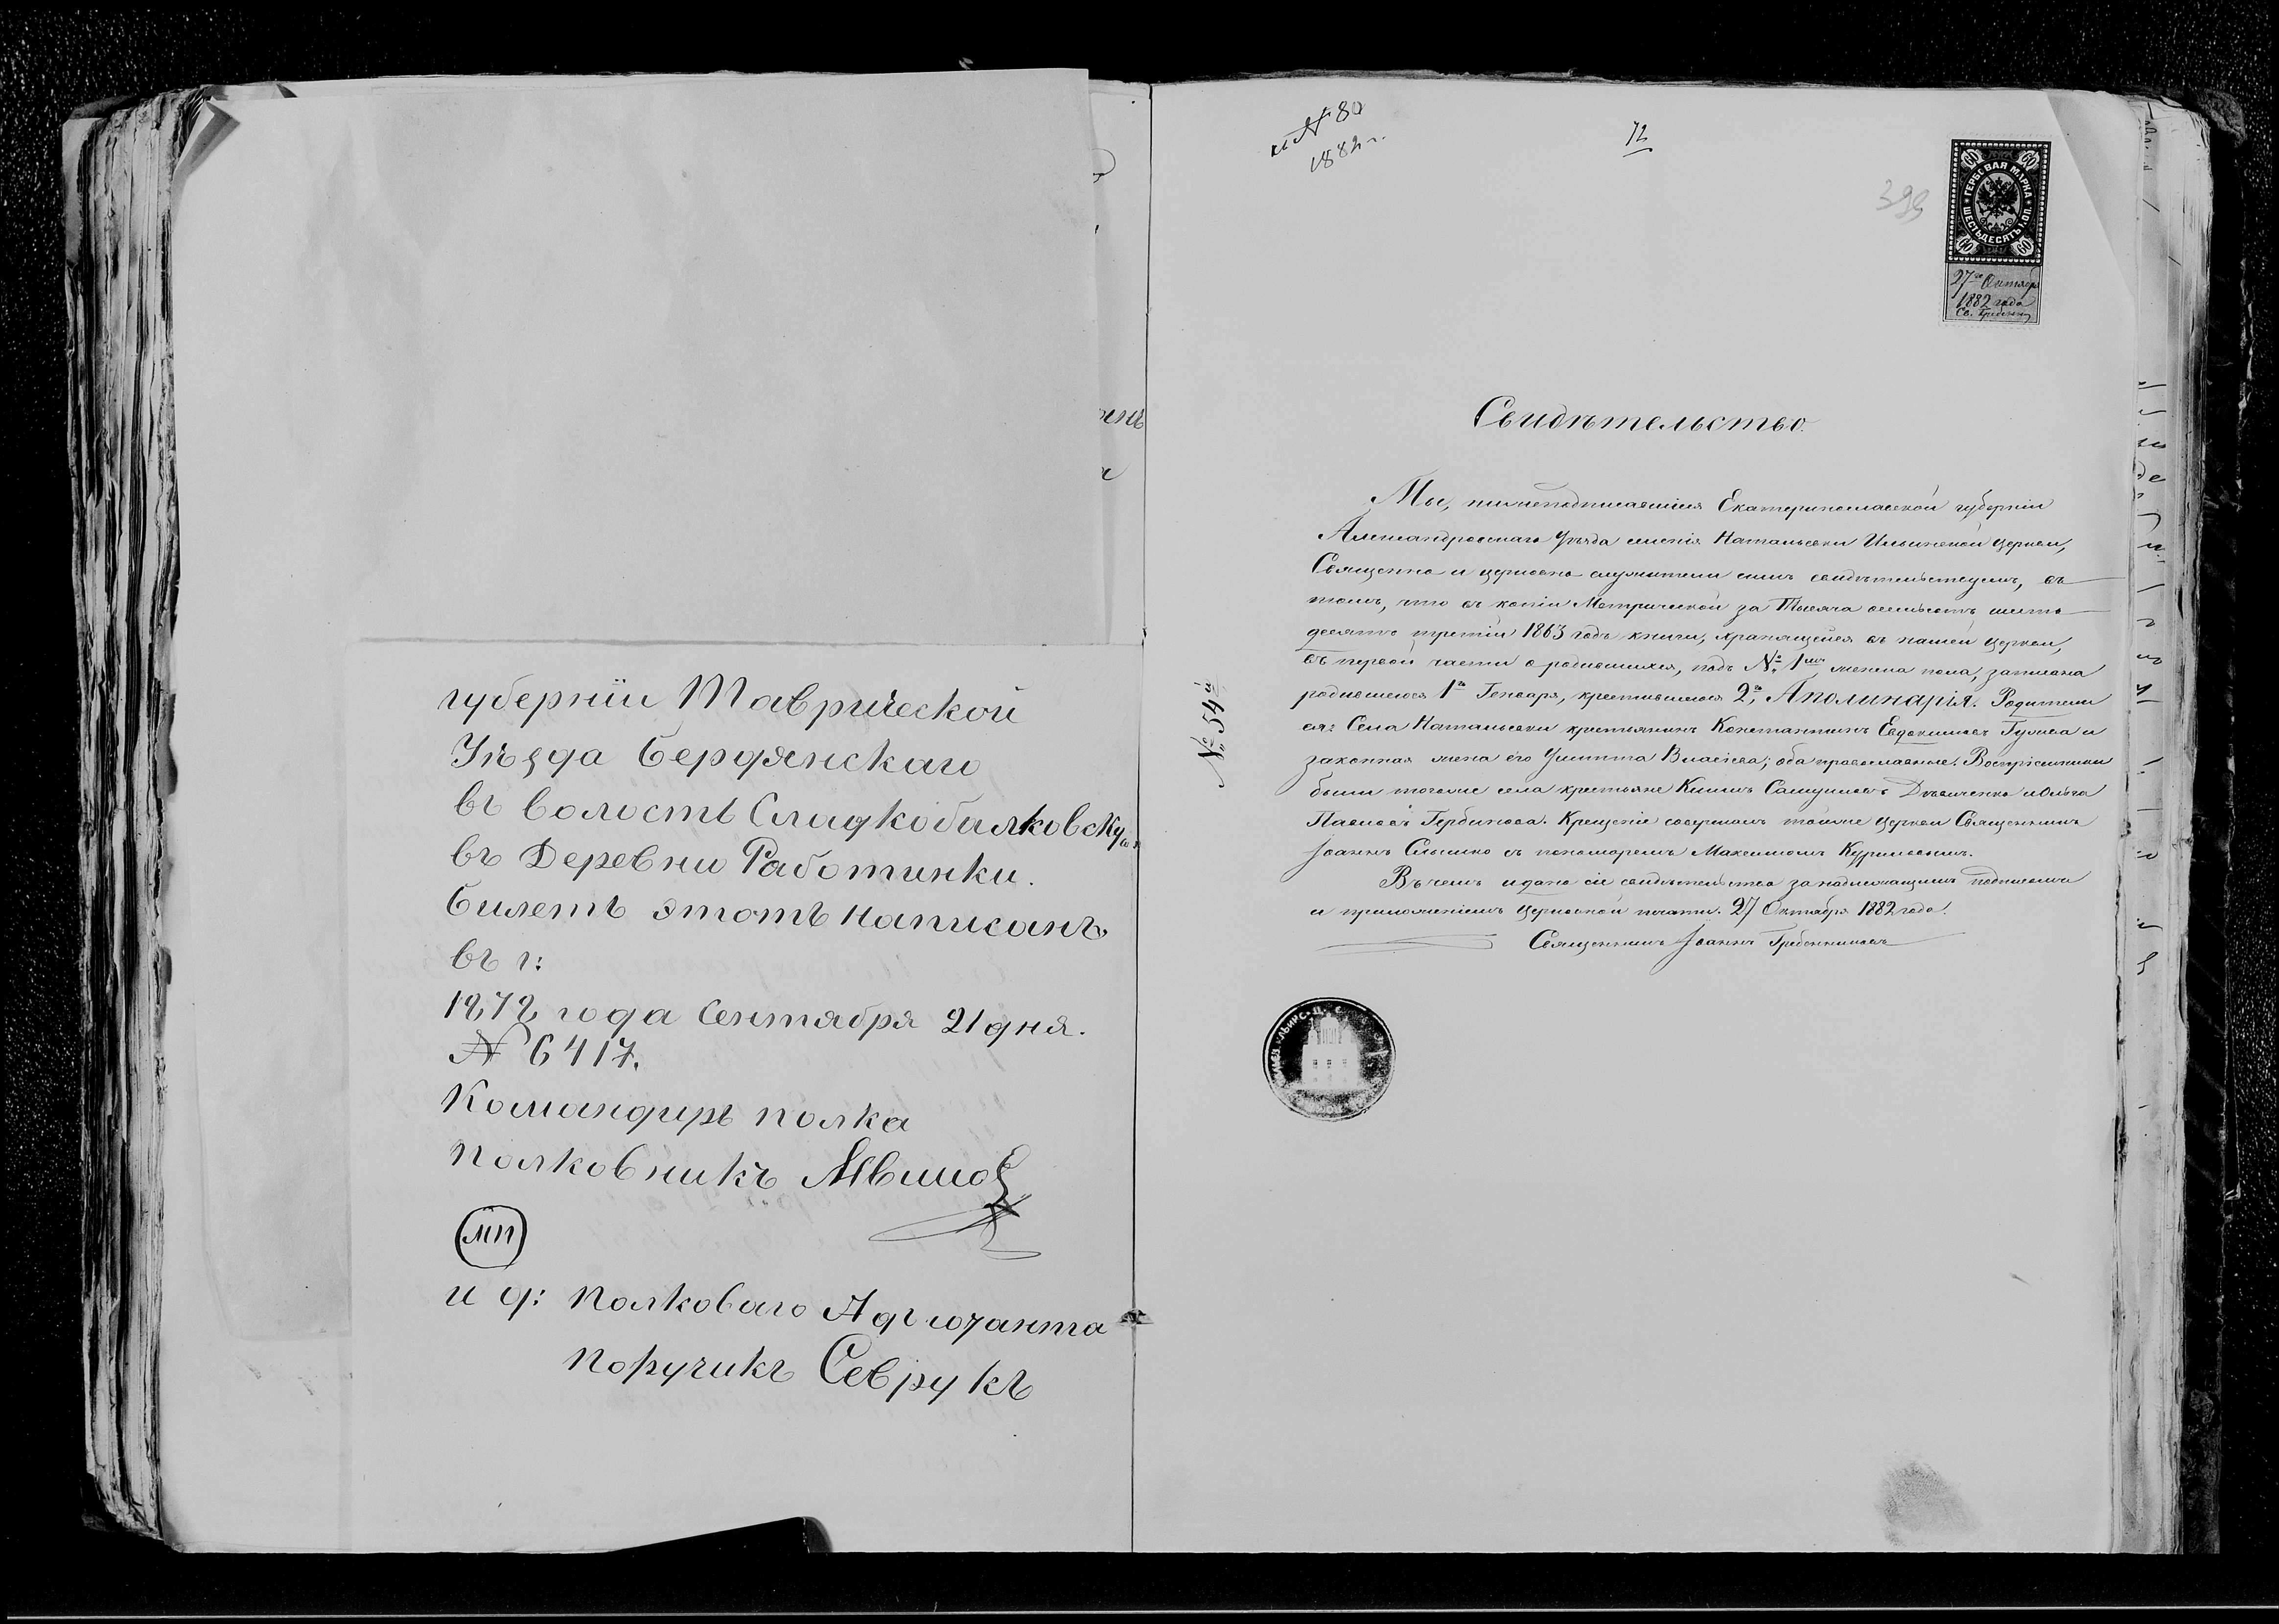 губерніи Таврической
Уѣзда Бердянскаго
въ волость Сладкобалковскую
въ Деревни Работинки.
Билетъ этотъ написанъ
въ г:
1878 года Сентября 21 дня.
№ 6417.
Командиръ полка
полковникъ
МП
и д: полковаго Адъютанта
поручикъ Севрукъ
к № 80
1882 г.
72
399
ГЕРБОВАЯ МАРКА
ШЕСТЬДЕСЯТЪ КОП.
60 60
60 60
27го Октября
1882 года
Св. Гребенник
Свидѣтельство.
Мы, нижеподписавшіеся Екатеринославской губерніи
Александровскаго Уѣзда имѣнія Натальевки Ильинской церкви,
Священно и церковно служители симъ свидѣтельствуемъ, въ
томъ, что въ копіи Метрической за Тысяча восемьсотъ шесть
десятъ третій 1863 годъ книги, хранящейся въ нашей церкви,
въ первой части о родившихся, подъ № 1мъ женска пола, записана
родившеюся 1го Генваря, крестившеюся 2го, Аполинарія. Родители
ея: Села Натальевки крестьянинъ Константинъ Евдокимовъ Гузива и
законная жена его Улитта Власіева; оба православные. Воспріемники
были тогоже села крестьяне Климъ Самуиловъ и Ольга
Павлова Горбинова. Крещеніе совершалъ тойже церкви Священникъ
Іоаннъ съ пономоремъ Максимомъ Куриловымъ.
Въ чемъ и дано сіе свидѣтельство за надлежащимъ подписомъ
и приложеніемъ Церковной печати. 27 Октября 1882 года.
Священникъ Іоаннъ Гребенниковъ
№ 54й